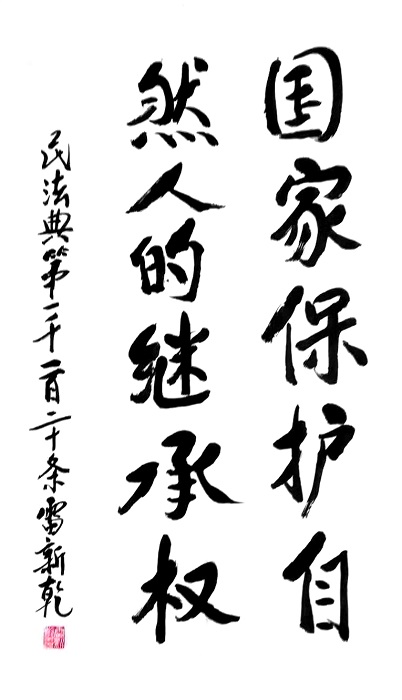 国家保护自
然人的继承权
民法典第一千一百二十条雷新乾